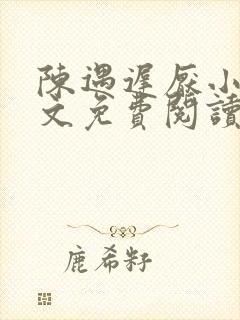 陳遇遲厭小
文免費閱讀
鹿希籽